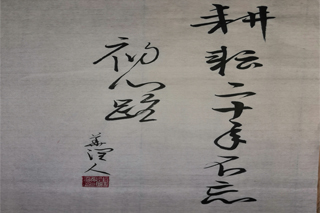 耕耘二十年不忘
初心路